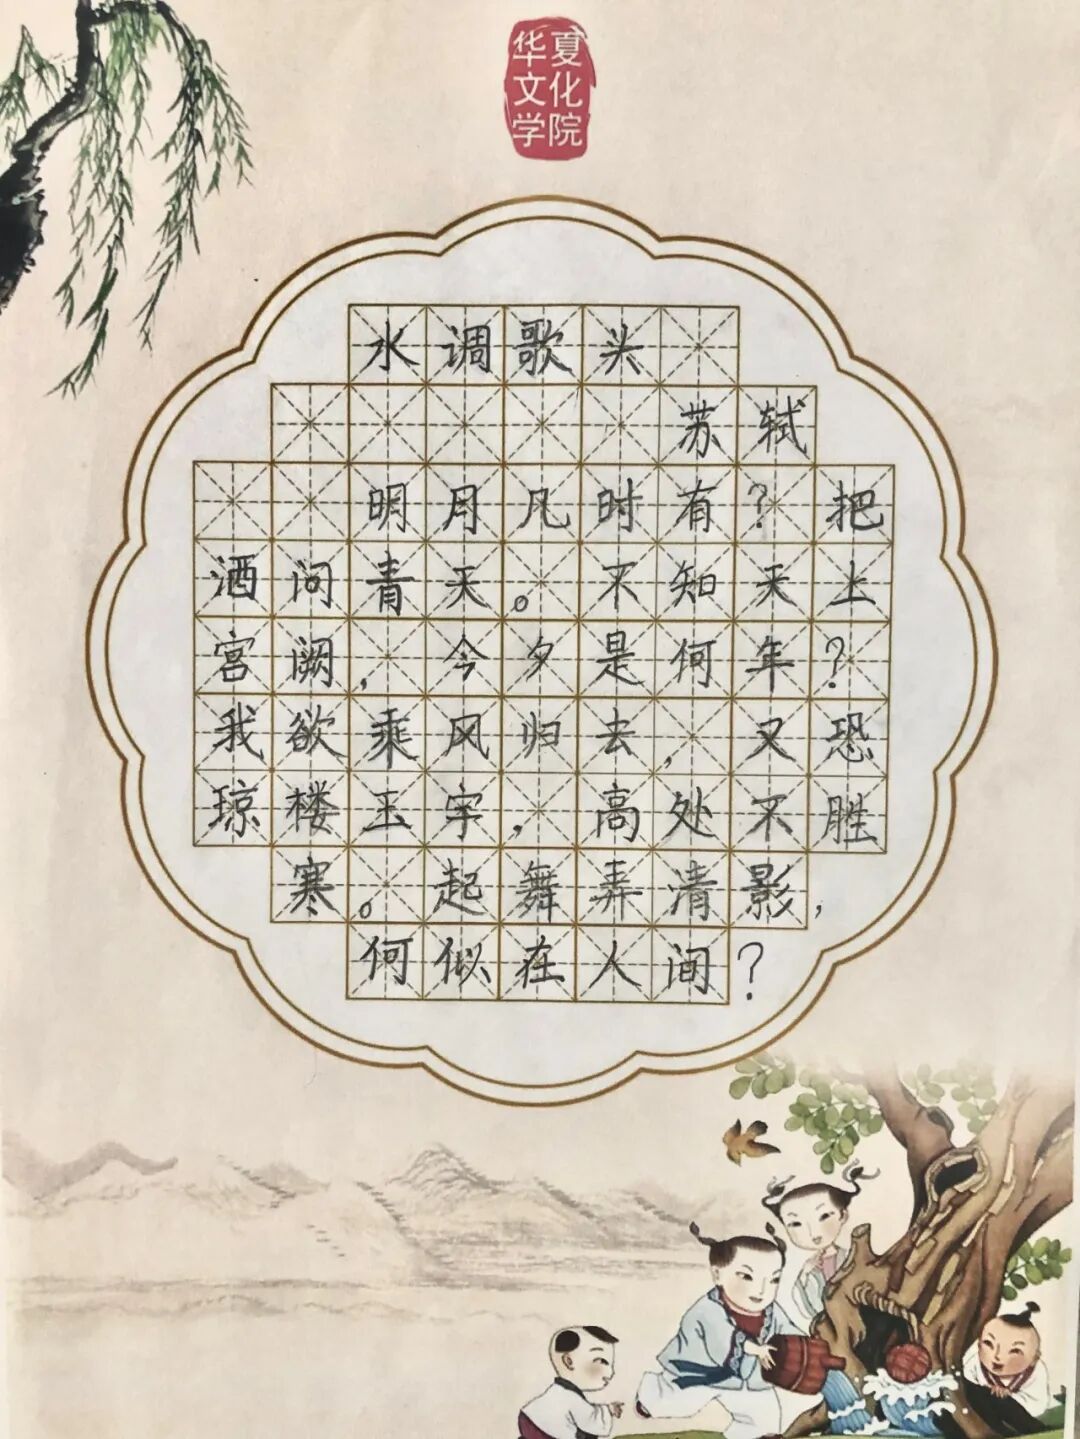 华夏
文化
学院
水调歌头
苏轼
明月凡时有？把
酒问青天。不知天上
宫阙，今夕是何年？
我欲乘风归去，又恐
琼楼玉宇，高处不胜
寒。起舞弄清影，
何似在人间？